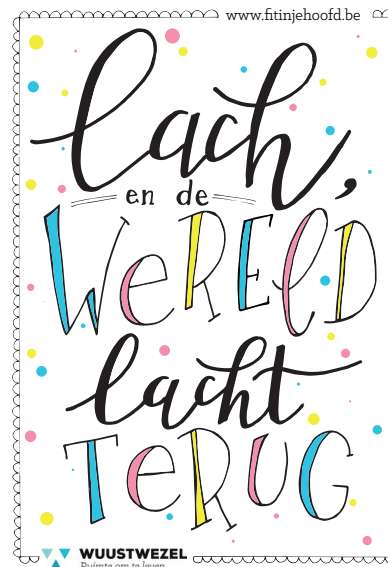 www.fitinjehoofd.be
lach,
en de
WeRELD
lacht
TeRUG
WUUSTWEZEL
Ruimte om te leven